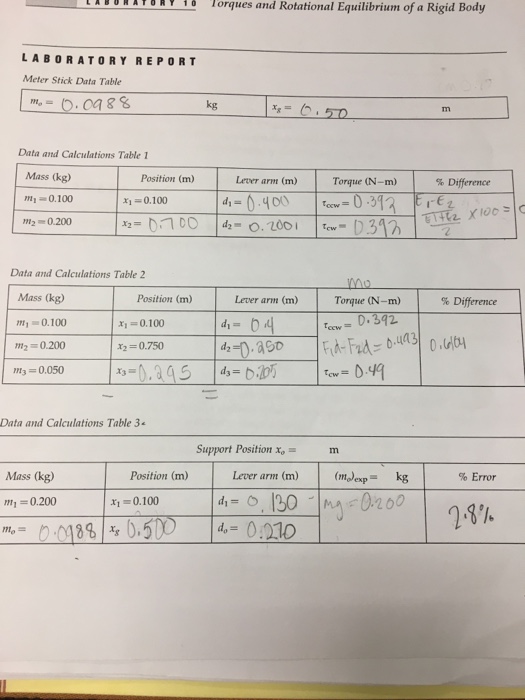 LABORATORY 10 Torques and Rotational Equilibrium of a Rigid Body
LABORATORY REPORT
Meter Stick Data Table
mₒ = 0.0988 kg x_g = 0.50 m
Data and Calculations Table 1
Mass (kg) Position (m) Lever arm (m) Torque (N–m) % Difference
m₁ = 0.100 x₁ = 0.100 d₁ = 0.400 τccw = 0.392 E₁-E₂
m₂ = 0.200 x₂ = 0.700 d₂ = 0.2001 τcw = 0.392 E1+E2 x100 =
2
Data and Calculations Table 2
mo
Mass (kg) Position (m) Lever arm (m) Torque (N–m) % Difference
m₁ = 0.100 x₁ = 0.100 d₁ = 0.4 τccw = 0.392
m₂ = 0.200 x₂ = 0.750 d₂ = 0.250 F₁d-F₂d = 0.493
m₃ = 0.050 x₃ = 0.295 d₃ = 0.205 τcw = 0.49
Data and Calculations Table 3
Support Position xₒ = m
Mass (kg) Position (m) Lever arm (m) (mₒ)exp = kg % Error
m₁ = 0.200 x₁ = 0.100 d₁ = 0.130 - mg = 0.200 2.8%
mₒ = 0.0988 x_g 0.500 dₒ = 0.270